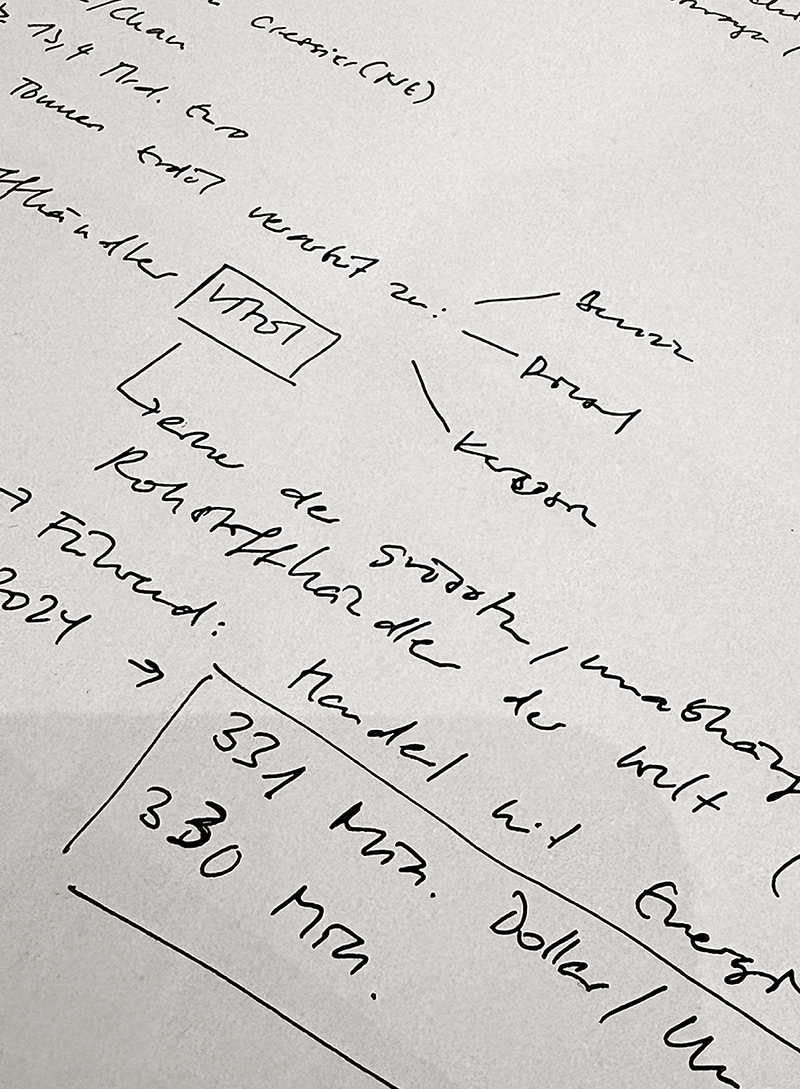 Cressier (NE)
13,4 Mrd. Euro
Tonnen Erdöl verarbeitet zu:
Benzin
Diesel
Kerosin
Vitol
eine der grössten, unabhäng
Rohstoffhändler der Welt
→ Führend: Handel mit Energi
2024 →
331 Mio. Dollar / Um
330 Mio.